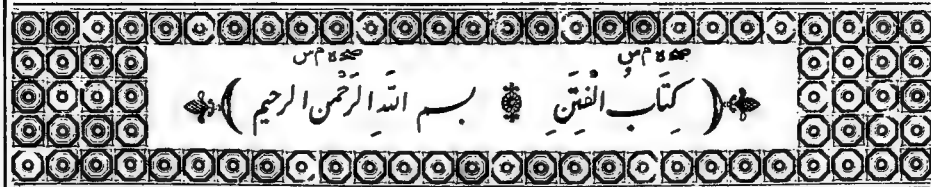 كِتَابُ الْفِتَنِ بسم اللهِ الرَّحْمنِ الرحيم